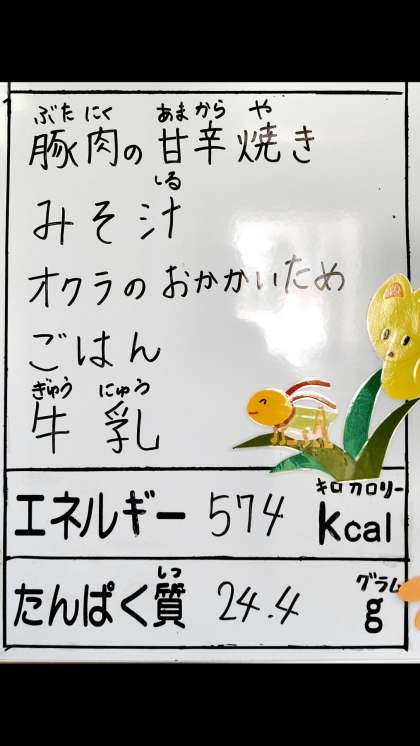 ぶた にく あま から や
豚肉の甘辛焼き
しる
みそ汁
オクラのおかかいため
ごはん
ぎゅう にゅう
牛乳
キロカロリー
エネルギー 574 Kcal
しつ グラム
たんぱく質 24.4 g